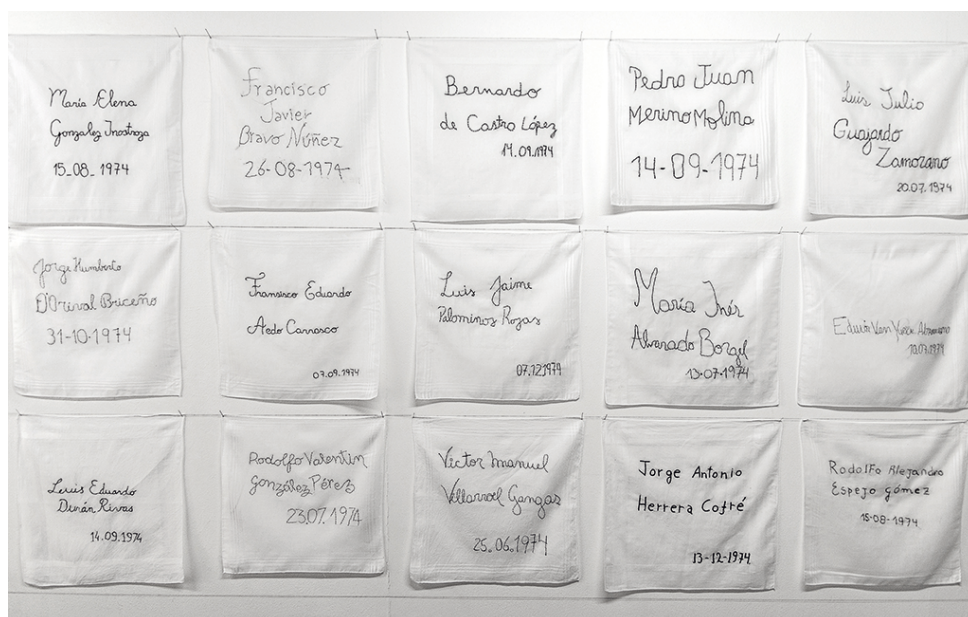 María Elena
Gonzalez Inostroza
15-08-1974
Francisco
Javier
Bravo Núñez
26-08-1974
Bernardo
de Castro López
14.09.1974
Pedro Juan
Merino Molina
14-09-1974
Luis Julio
Guajardo
Zamorano
20.07.1974
Jorge Humberto
D'Orival Briceño
31-10-1974
Francisco Eduardo
Aedo Carrasco
07.09.1974
Luis Jaime
Palominos Rojas
07.12.1974
María Inés
Alvarado Borgel
13-07-1974
Edwin Van Yurick
10.07.1974
Luis Eduardo
Durán Rivas
14.09.1974
Rodolfo Valentin
gonzález Pérez
23.07.1974
Victor Manuel
Villarroel Gangas
25.06.1974
Jorge Antonio
Herrera Cofré
13-12-1974
Rodolfo Alejandro
Espejo gómez
15-08-1974